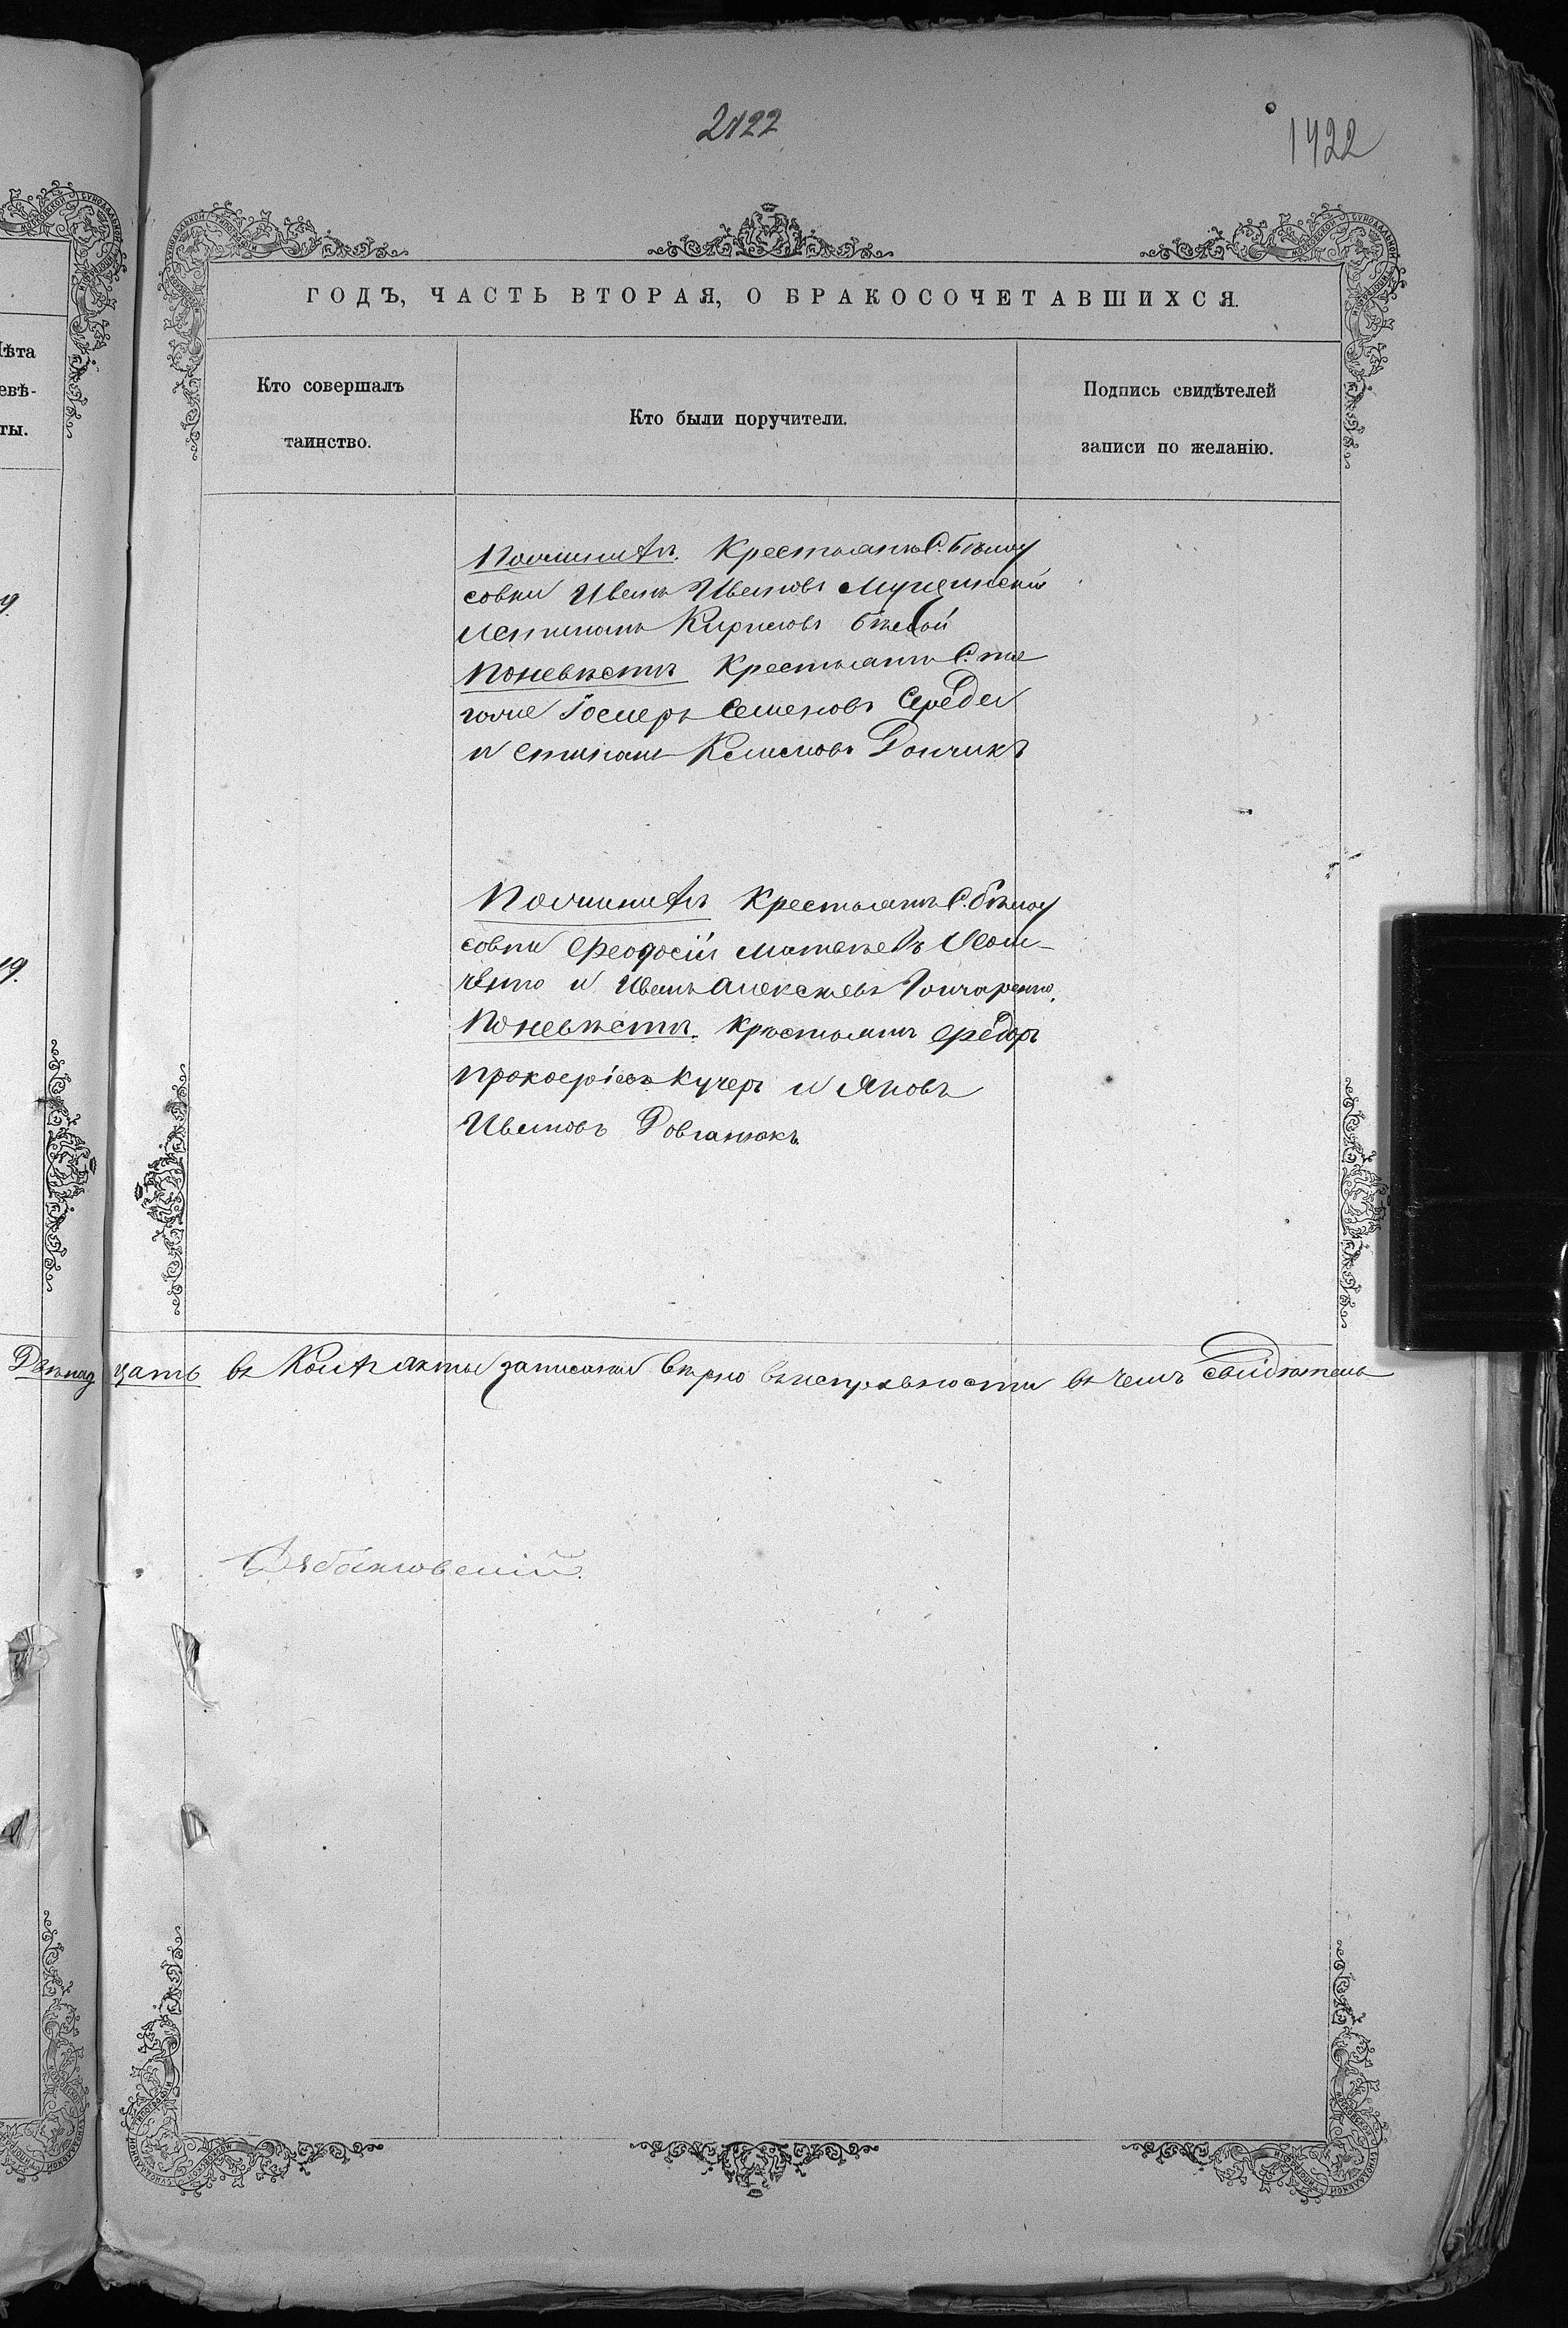 2122
1422
ГОДЪ, ЧАСТЬ ВТОРАЯ, О БРАКОСОЧЕТАВШИХСЯ.
Лѣта
евѣ-
ты.
Кто совершалъ
таинство.
Кто были поручители.
Подпись свидѣтелей
записи по желанію.
Крестьяне С. Бѣлоу
совки Иванъ Ивановъ
Кириловъ Бѣлый
По невѣстѣ Крестьяне С.
Семеновъ Середа
и Степанъ Климовъ Дончикъ
Крестьяне С. Бѣлоу
совки Феодосій Матвѣевъ
ченко и Иванъ Алексѣевъ Гончаренко.
По невѣстѣ. Крестьяне Федоръ
Прокофіевъ Кучеръ и Яковъ
Ивановъ Довганюкъ
19
Двѣнад цать въ акты записаны вѣрно въ исправности въ чемъ свидѣтель